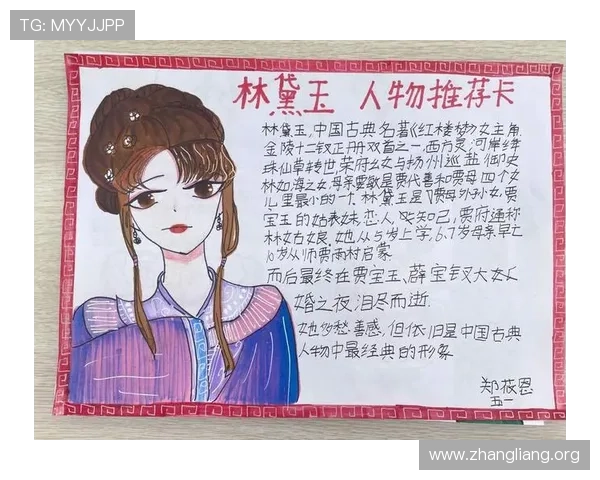 TG: MYYJJPP
林黛玉 人物推荐卡
林黛玉,中国古典名著《红楼梦》女主角
金陵十二钗正册双首之一,西方灵河岸绛
珠仙草转世,荣府幺女与扬州巡盐御史
林如海之女,母亲贾敏是贾代善和贾母四个女
儿里最小的一个.林黛玉是贾母外孙女,贾
宝玉的姑表妹,恋人,知己,贾府通称
林姑娘.她从5岁上学,6.7岁母亲早亡
10岁从师贾雨村启蒙
而后最终在贾宝玉、薛宝钗大
婚之夜泪尽而逝.
她多愁善感,但依旧是中国古典
人物中最经典的形象
郑筱恩
五一
www.zhangliang.org